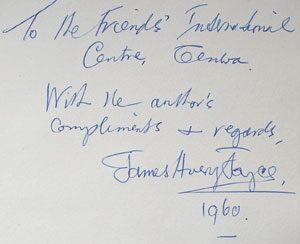 To the Friends' International
Centre, Geneva.
With the author's
compliments & regards,
James Avery Joyce,
1960.